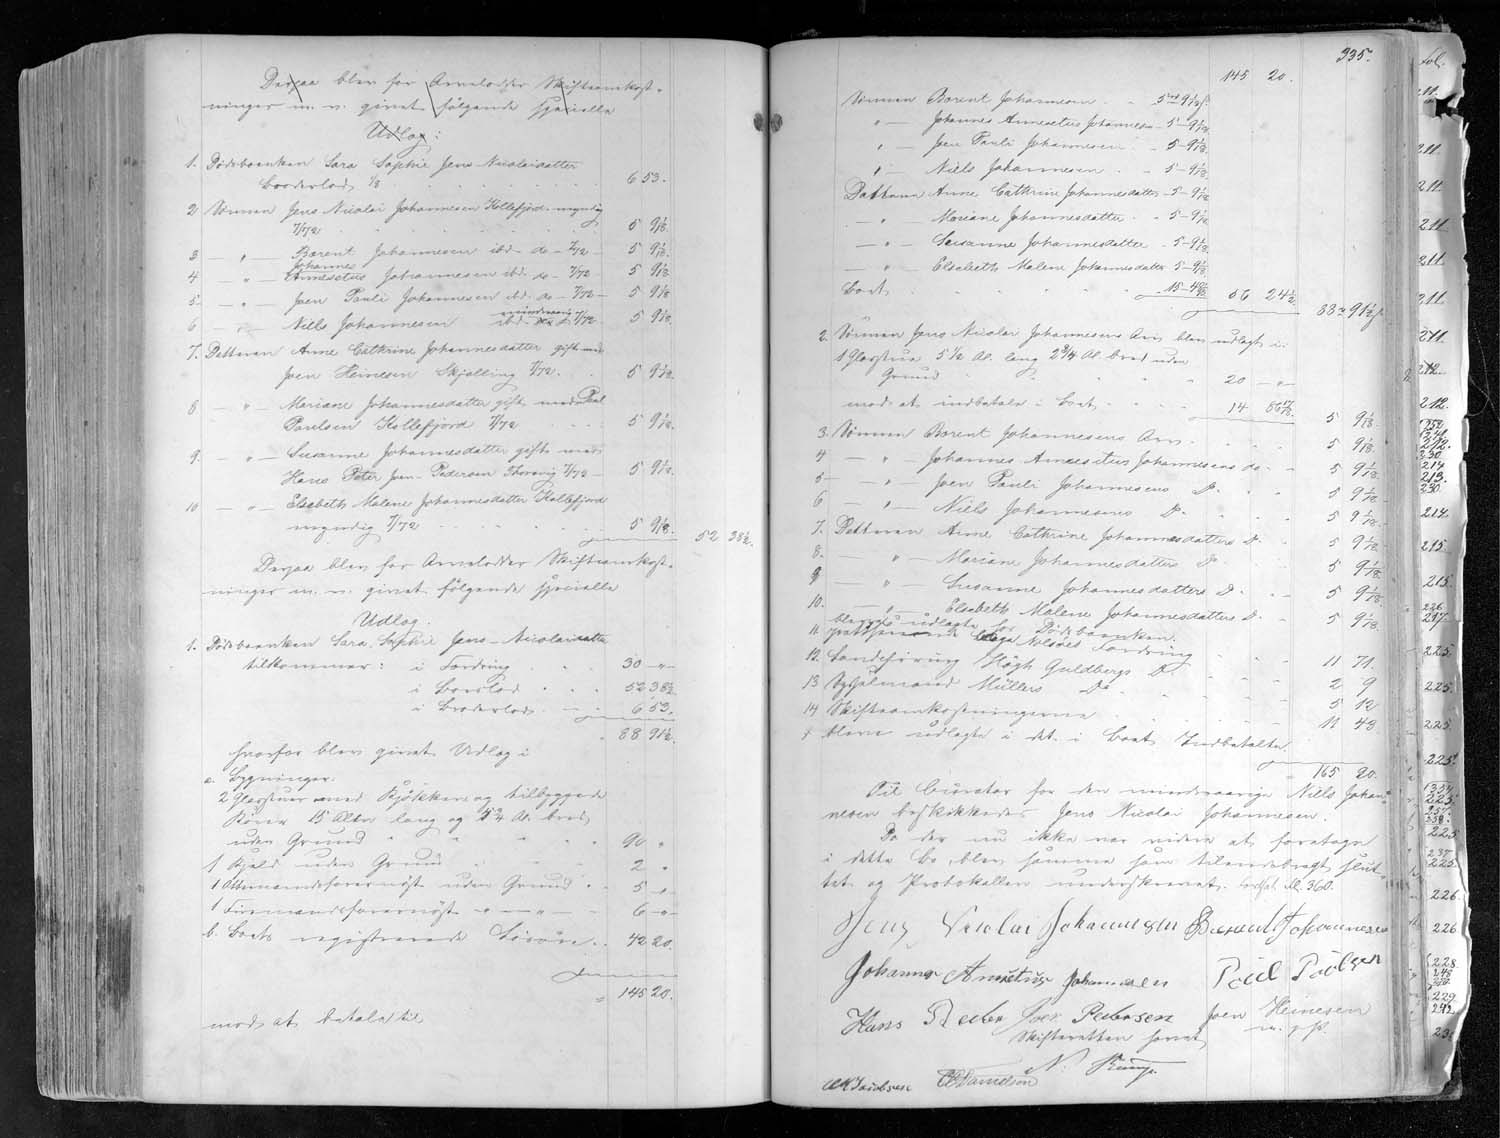 Derpaa blev for Arvelodder Skifteomkost-
ninger m. v. givet følgende specielle
Udlog:
1. Dødsboenken Sara Sophie Jens Nicolaidatter
Broderlod 1/8 6 53.
2 Sønnen Jens Nicolai Johannesen Kollefjord myndig
7/172 5 9 1/18.
3 — " — Barent Johannesen ibd. do 7/72 — 5 9 1/18
Johannes
4 — " — Annesetus Johannesen ibd. do 7/72 — 5 9 1/18
5 — " — Joen Pauli Johannesen ibd. do — 7/72 — 5 9 1/18
mindreaarig
6 — " — Niels Johannesen ibd. 7/72 5 9 1/18.
7. Datteren Anne Cathrine Johannesdatter gift med
Joen Heinesen Skjælling 7/72 5 9 1/18.
8 — " — Mariane Johannesdatter gift med Poul
Poulsen Kollefjord 7/72 5 9 1/18.
9. — " — Susanne Johannesdatter gift med
Hans Peter Joen Pedersen 7/72 — 5 9 1/18
10 — " — Elsebeth Malene Johannesdatter Kollefjord
myndig 7/72 5 9 1/18.
52 38 1/2.
Derpaa blev for Arvelodder Skifteomkost-
ninger m. v. givet følgende specielle
Udlog.
1. Dødsboenken Sara Sophie Jens Nicolaidatter
tilkommer: i Fordring 30 — " —
i Boeslod 52 38 1/2
i Broderlod 6 53.
88 91 1/2.
hvorfor blev givet Udlog i
a. Bygninger:
2 Glasstuer med Kjøkken og tilbyggede
15 Alen lang og Al. bred
uden Grund 90 "
1 Hjeld uden Grund 2 "
1 Ottemandsfarernøst uden Grund 5 — " —
1 Firemandsfarernøst — " — " — 6 — " —
b. Boets registrerede Løsøre 42 20.
" 145 20.
mod at betale til
335.
145 20.
Sønnen Barent Johannesen 5 — 9 1/18
" — Johannes Annesetus Johannesen — 5 — 9 1/18
" — Joen Pauli Johannesen — 5 — 9 1/18
" — Niels Johannesen — 5 — 9 1/18
Datteren Anne Cathrine Johannesdatter — 5 — 9 1/18
— " — Mariane Johannesdatter — 5 — 9 1/18
— " — Susanne Johannesdatter — 5 — 9 1/18
— " — Elsebeth Malene Johannesdatter 5 — 9 1/18
Boet 56 24 1/2
88 91 1/2
2. Sønnen Jens Nicolai Johannesens Arv blev udlagt i:
1 Glasstue 5 1/2 Al. lang 2 3/4 Al. bred uden
Grund 20 — " —
mod at indbetale i Boet 14
5 9 1/18.
3. Sønnen Barent Johannesens Arv 5 9 1/18.
4 — " — Johannes Annesetus Johannesens do 5 9 1/18
5 — " — Joen Pauli Johannesens Do 5 9 1/18
6 — " — Niels Johannesens Do 5 9 1/18.
7. Datteren Anne Cathrine Johannesdatters Do 5 9 1/18
8. — " — Mariane Johannesdatters Do 5 9 1/18.
9 — " — Susanne Johannesdatters Do 5 9 1/18.
10. — " — Elsebeth Malene Johannesdatters Do 5 9 1/18.
udlagte for Dødsboenken.
11 Nolsøes Fordring 11 71.
12. Landsfoging Høgh Guldbergs Do 2 9
13 Sysselmand Müllers Do 5 12
14 Skifteomkostningerne 11 48
bleve udlagte i det i Boet Indbetalte.
165 20.
Til Curator for den mindreaarige Niels Johan-
nesen beskikkedes Jens Nicolai Johannesen.
Da der nu ikke var videre at foretage
i dette Bo, blev samme som tilendebragt slut-
tet og Protokollen underskrevet. Fortsat Al. 360.
Jens Nicolai Johannesen Barent Johannesen
Johannes Anisetus Johannesen Poul Poulsen
Hans Peder Joen Pedersen Joen Heinesen
m. f. P.
Skifteretten forret
N.
Jacobsen Danielson
Fol.
211.
211.
211.
211.
211.
211.
211.
212.
212.
212.
230.
214
213.
230.
214
215.
215.
226.
217.
225.
225.
225.
225.
225.
225
237.
225.
226.
226.
228.
229.
242.